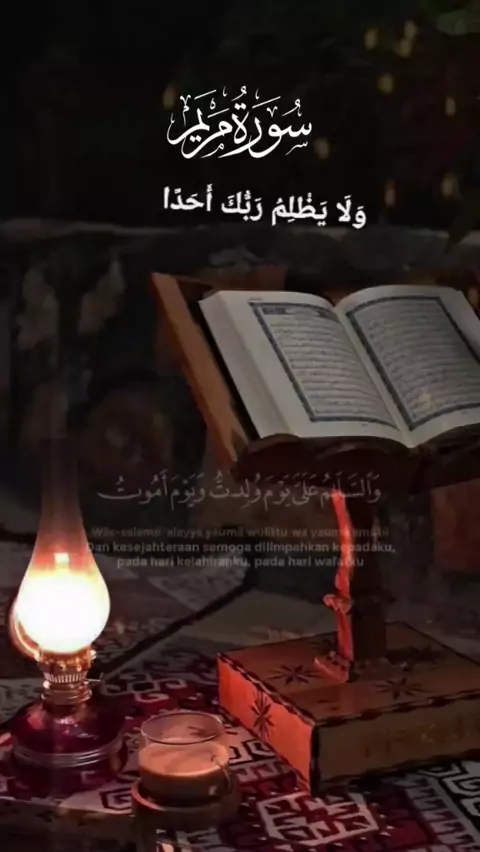 سُورَةُ مَرْيَم
وَلَا يَظْلِمُ رَبُّكَ أَحَدًا
وَالسَّلَامُ عَلَيَّ يَوْمَ وُلِدتُّ وَيَوْمَ أَمُوتُ
Was-salamo 'alayya yauma wulittu wa yauma amutu
Dan kesejahteraan semoga dilimpahkan kepadaku,
pada hari kelahiranku, pada hari wafatku